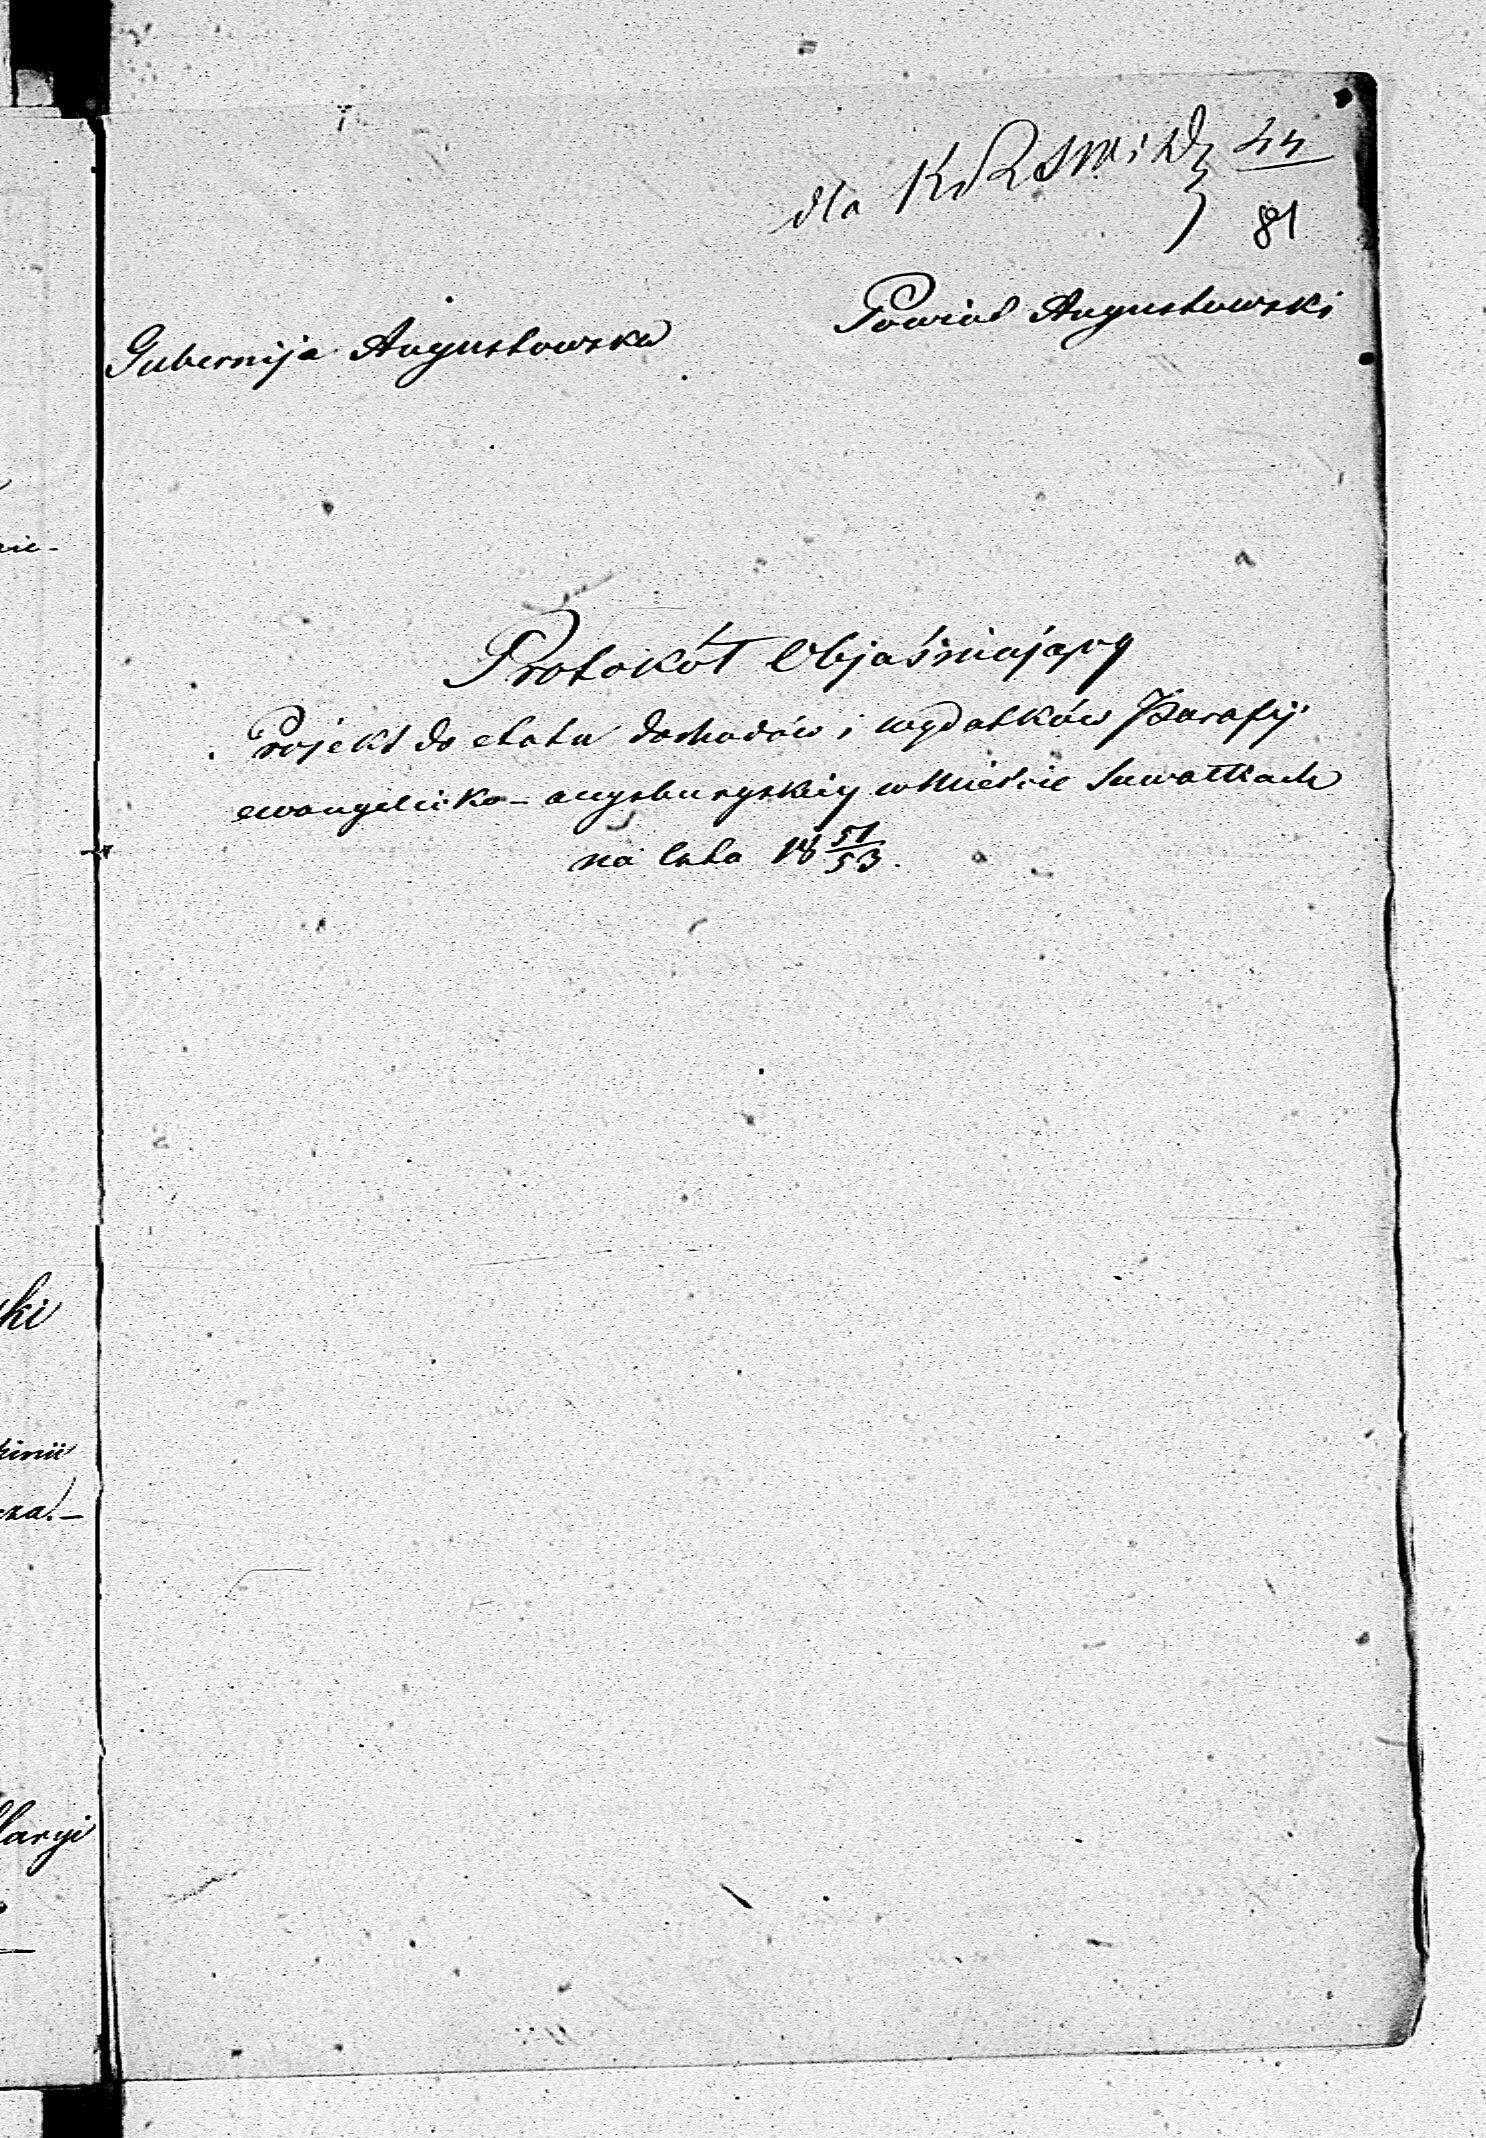 dla K R S W i D 44
81
Gubernija Augustowska
Powiat Augustowski
Protokół Objaśniający
Projekt do etatu dochodów i wydatków Parafij
ewangelicko - augsburgskiey w Mieście Suwałkach
na lata 18 51/53.
ski
zna. –